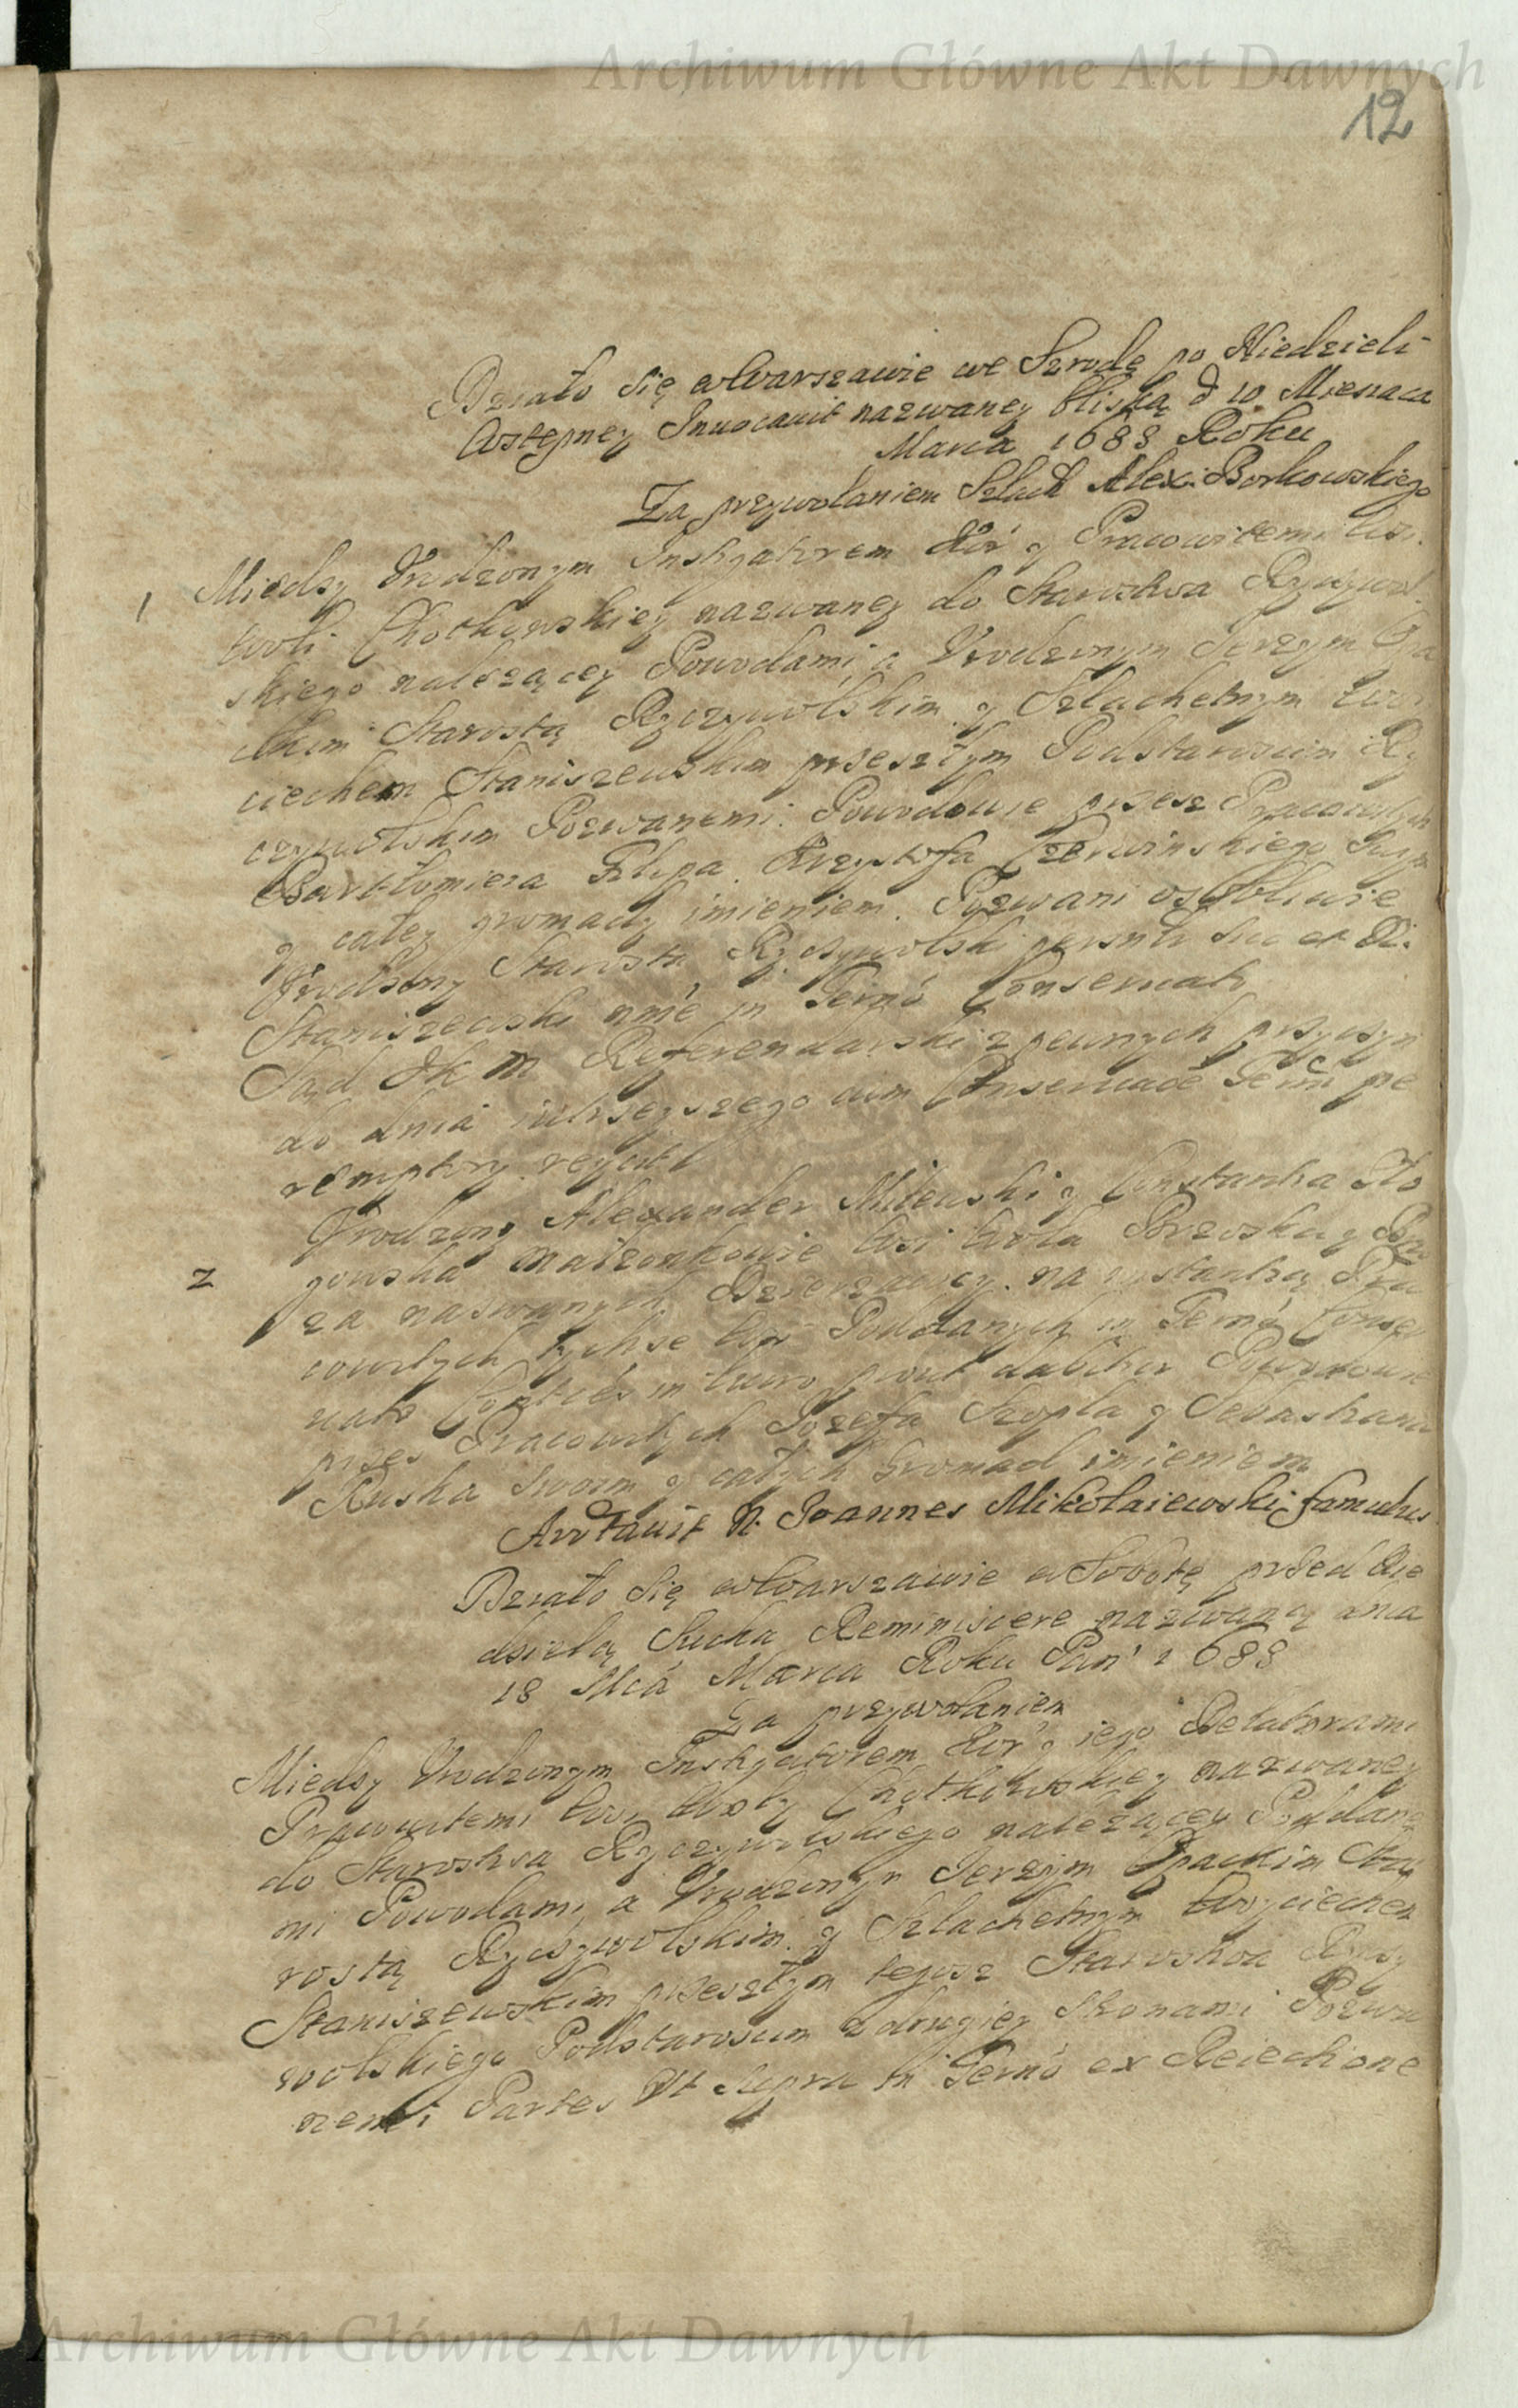 Archiwum Główne Akt Dawnych
12
Działo Się wWarszawie we Szrodę po Niedzieli
Wstępney Inuocauit nazwaney bliską d 10 Miesiaca
Marca 1688 Roku
Za przywołaniem Szlach Alex: Borkowskiego
1 Miedzy Vrodzonym Instigatorem Kor y Pracowitemi Wsi
Woli Chotkowskiey nazwaney do Starostwa Ryczywol
skiego należącey Powodami, a Vrodzonym Jerzym Opa
ckim Starostą Ryczywolskim y Szlachetnym Woy
ciechem Staniszewskim przeszłym Podstaroscim Ry
czywolskim Pozwanemi. Powodowie przesz Pracowitych
Bartłomieia Filipa, Krzysztofa Czerwinskiego Swym
y całey gromady imieniem. Pozwani osobliwie
Vrodzony Starosta Ryczywolski personł: suo et N.
Staniszewski nni'e in Termo Conseruato
Sąd JK M Referendarski z pewnych przyczyn
do dnia iutrzeyszego cum Conseruaoe Termi pe
remptory reyicit
2 Vrodzony Alexander Milewski y Constantia Ro
gowska małzonkowie Wsi Wola Porzoska y
za nazwanych Dzierzawcy. na instantią Pra
cowitych tychze Wsi Poddanych in Termo Conser
uato Contties in lucro prout dabitur Powodowie
przes Pracowitych Jozefa Szopla y Sebastiana
Ruska Swoim y całych Gromad imieniem
Arrtauit N. Joannes Mikołaiewski famulus
Działo Się wWarszawie w Sobotę przed Nie
dzielą Sucha Reminiscere nazwaną dnia
18 Mca Marca Roku Pan' 1688
Za przywołaniem
Miedzy Vrodzonym Instigatorem Kor y iego Delatorami
Pracowitemi Wsi Woly Chotkowskiey nazwaney
do Starostwa Ryczywolskiego należącey Poddany
mi Powodami, a Vrodzonym Jerzym Opackim Sta
rostą Ryczywolskim y Szlachetnym Woyciechem
Staniszewskim przeszłym tegosz Starostwa Ryczy
wolskiego Podstaroscim z drugiey Stronami Pozwa
nemi Partes Vt Supra in Termo ex Reiectione
Archiwum Główne Akt Dawnych